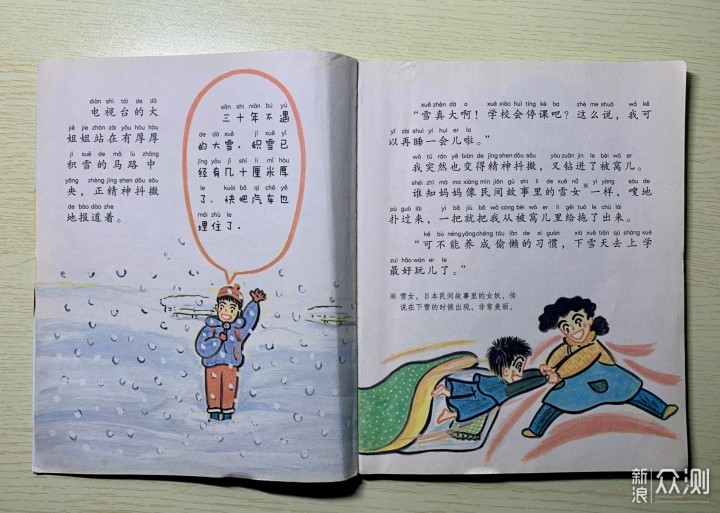 diàn shì tái de dà
电视台的大
jiě jie zhàn zài yǒu hòu hòu
姐姐站在有厚厚
jī xuě de mǎ lù zhōng
积雪的马路中
yāng zhèng jīng shen dǒu sǒu
央，正精神抖擞
de bào dào zhe
地报道着。
sān shí nián bú yù
三十年不遇
de dà xuě jī xuě yǐ
的大雪，积雪已
jīng yǒu jǐ shí lí mǐ hòu
经有几十厘米厚
le kuài bǎ qì chē yě
了，快把汽车也
mái zhù le
埋住了。
xuě zhēn dà a xué xiào huì tíng kè ba zhè me shuō wǒ kě
“雪真大啊！学校会停课吧？这么说，我可
yǐ zài shuì yí huìr la
以再睡一会儿啦。”
wǒ tū rán yě biàn de jīng shen dǒu sǒu yòu zuān jìn le bèi wō er
我突然也变得精神抖擞，又钻进了被窝儿。
shéi zhī mā ma xiàng mín jiān gù shi lǐ de xuě nǚ yí yàng sōu de
谁知妈妈像民间故事里的雪女※一样，嗖地
pū guò lái yì bǎ jiù bǎ wǒ cóng bèi wō er lǐ gěi tuō le chū lái
扑过来，一把就把我从被窝儿里给拖了出来。
kě bù néng yǎng chéng tōu lǎn de xí guàn xià xuě tiān qù shàng xué
“可不能养成偷懒的习惯，下雪天去上学
zuì hǎo wán er le
最好玩儿了。”
※ 雪女，日本民间故事里的女妖，传
说在下雪的时候出现，非常美丽。
新浪 众测